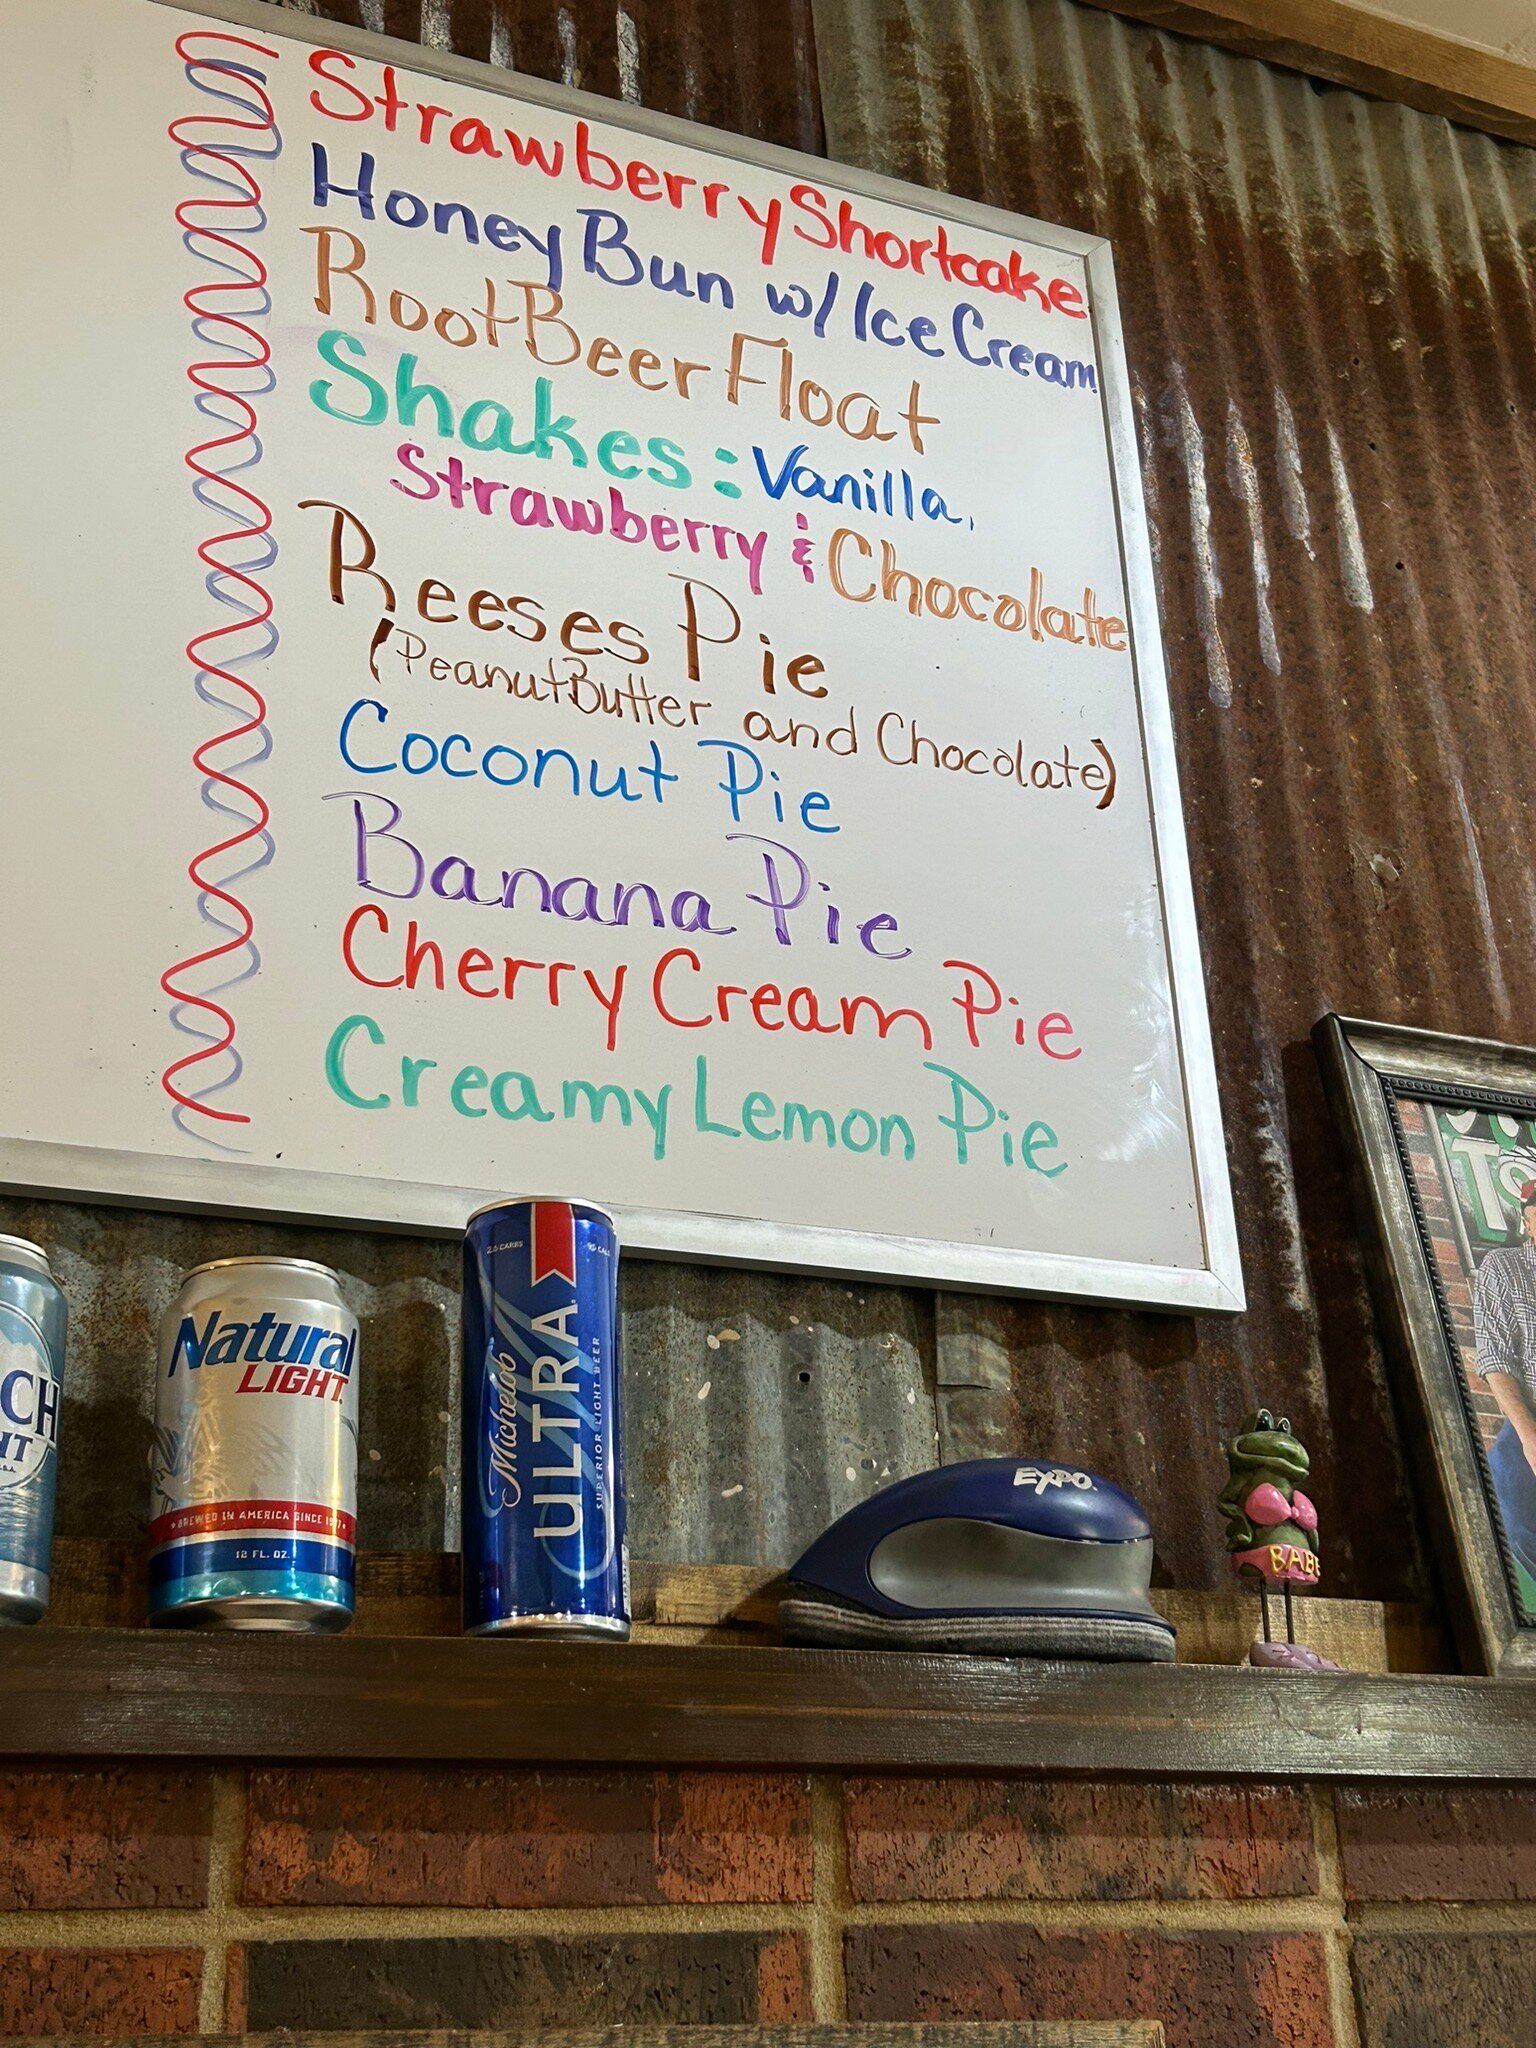 Strawberry Shortcake
Honey Bun w/ Ice Cream
Root Beer Float
Shakes: Vanilla,
Strawberry & Chocolate
Reeses Pie
(Peanut Butter and Chocolate)
Coconut Pie
Banana Pie
Cherry Cream Pie
Creamy Lemon Pie
CH
HT
Natural
LIGHT
BREWED IN AMERICA SINCE 1977
12 FL. OZ.
2.6 CARBS
95 CAL
Michelob
ULTRA
SUPERIOR LIGHT BEER
EXPO
BABE